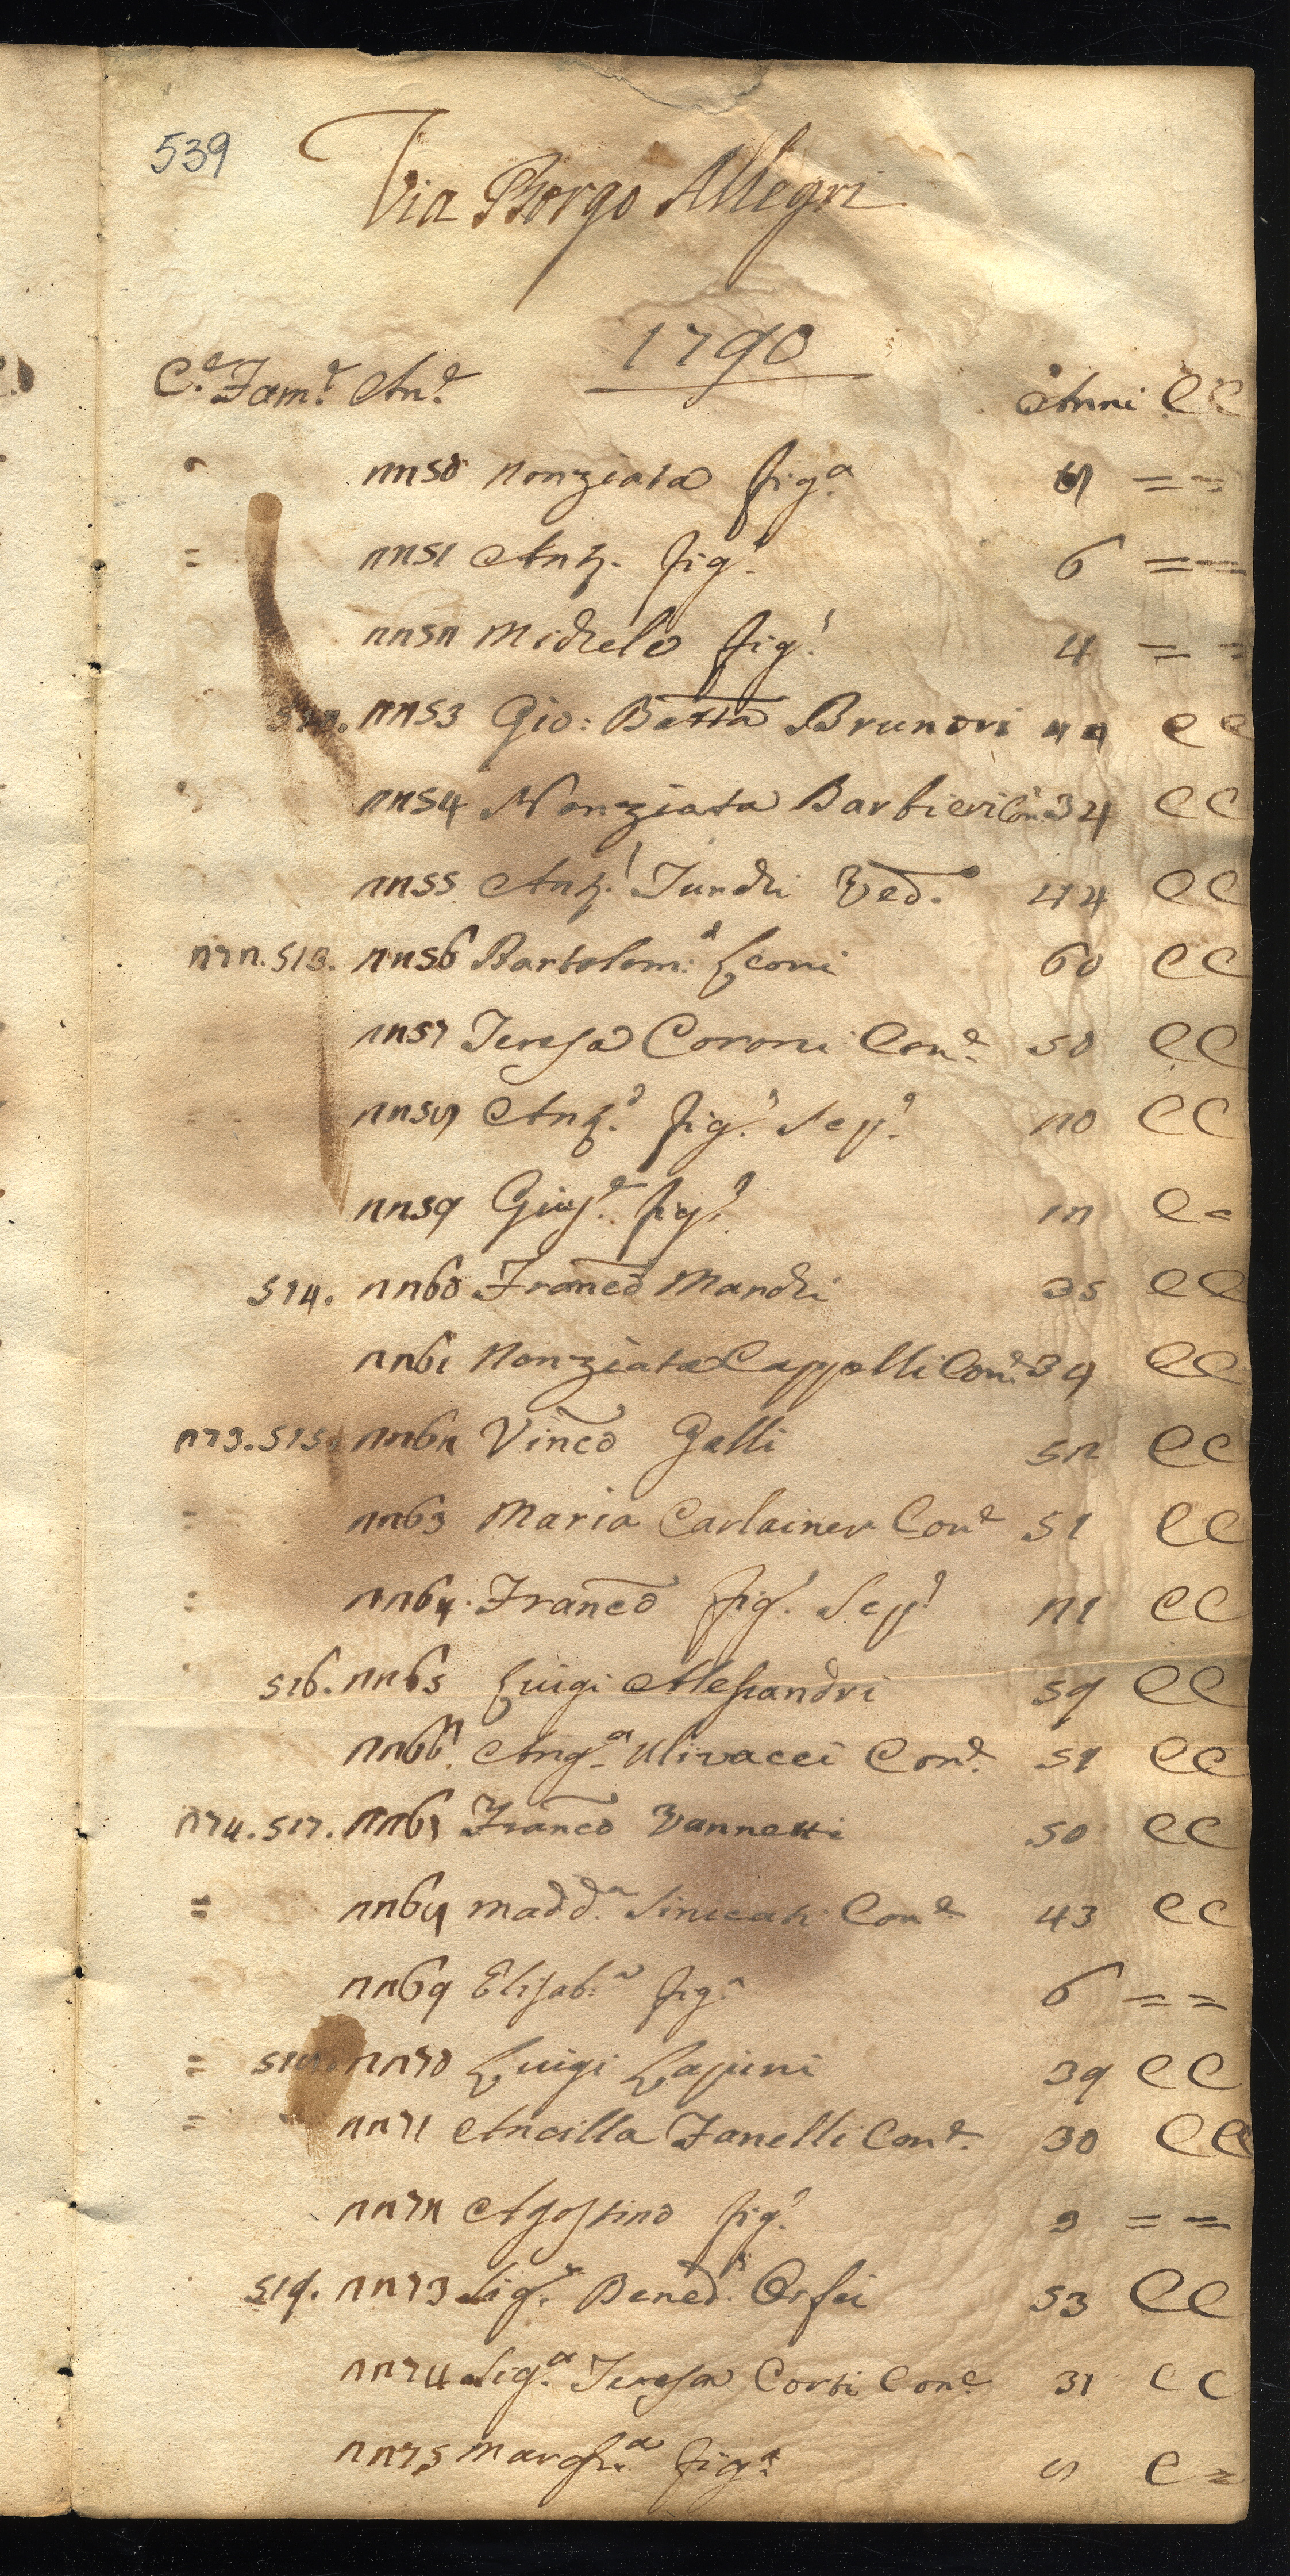 539
Via Borgo Allegri
1790
C.e Fam.e An.e Anni C C
" 2250 Nonziata fig.a 8 = =
= 2251 Ant. fig.o 6 = =
2252 Michele fig.o 4 = =
512. 2253 Gio: Batta Brunori 44 C C
" 2254 Nonziata Barbieri Con. 34 C C
2255 Ant.a Turchi Ved. 44 C C
272. 513. 2256 Bartolom.o Leoni 60 C C
2257 Teresa Coroni Con.e 50 C C
2258 Ant.o fig.o Sep.o 20 C C
2259 Gius.e fig.o 12 C =
514. 2260 Franco Manchi 35 C C
2261 Nonziata Cappelli Con.e 39 C C
273. 515. 2262 Vinco Galli 52 C C
= 2263 Maria Carlainer Con.e 51 C C
= 2264. Franco fig.o Sep.o 21 C C
" 516. 2265 Luigi Alessandri 59 C C
2266. Ang.a Ulivacci Con.e 51 C C
274. 517. 2267 Franco Vannetti 50 C C
= 2268 Madd.a Con.e 43 C C
2269 Elisab.a fig.a 6 = =
= 518. 2270 Luigi Lapini 39 C C
= 2271 Ancilla Fanelli Con.e 30 C C
2272 Agostino fig.o 3 = =
519. 2273 Sig.r Bened.o Orfei 53 C C
2274 Sig.a Teresa Corsi Con.e 31 C C
2275 Margh.a fig.a 8 C =